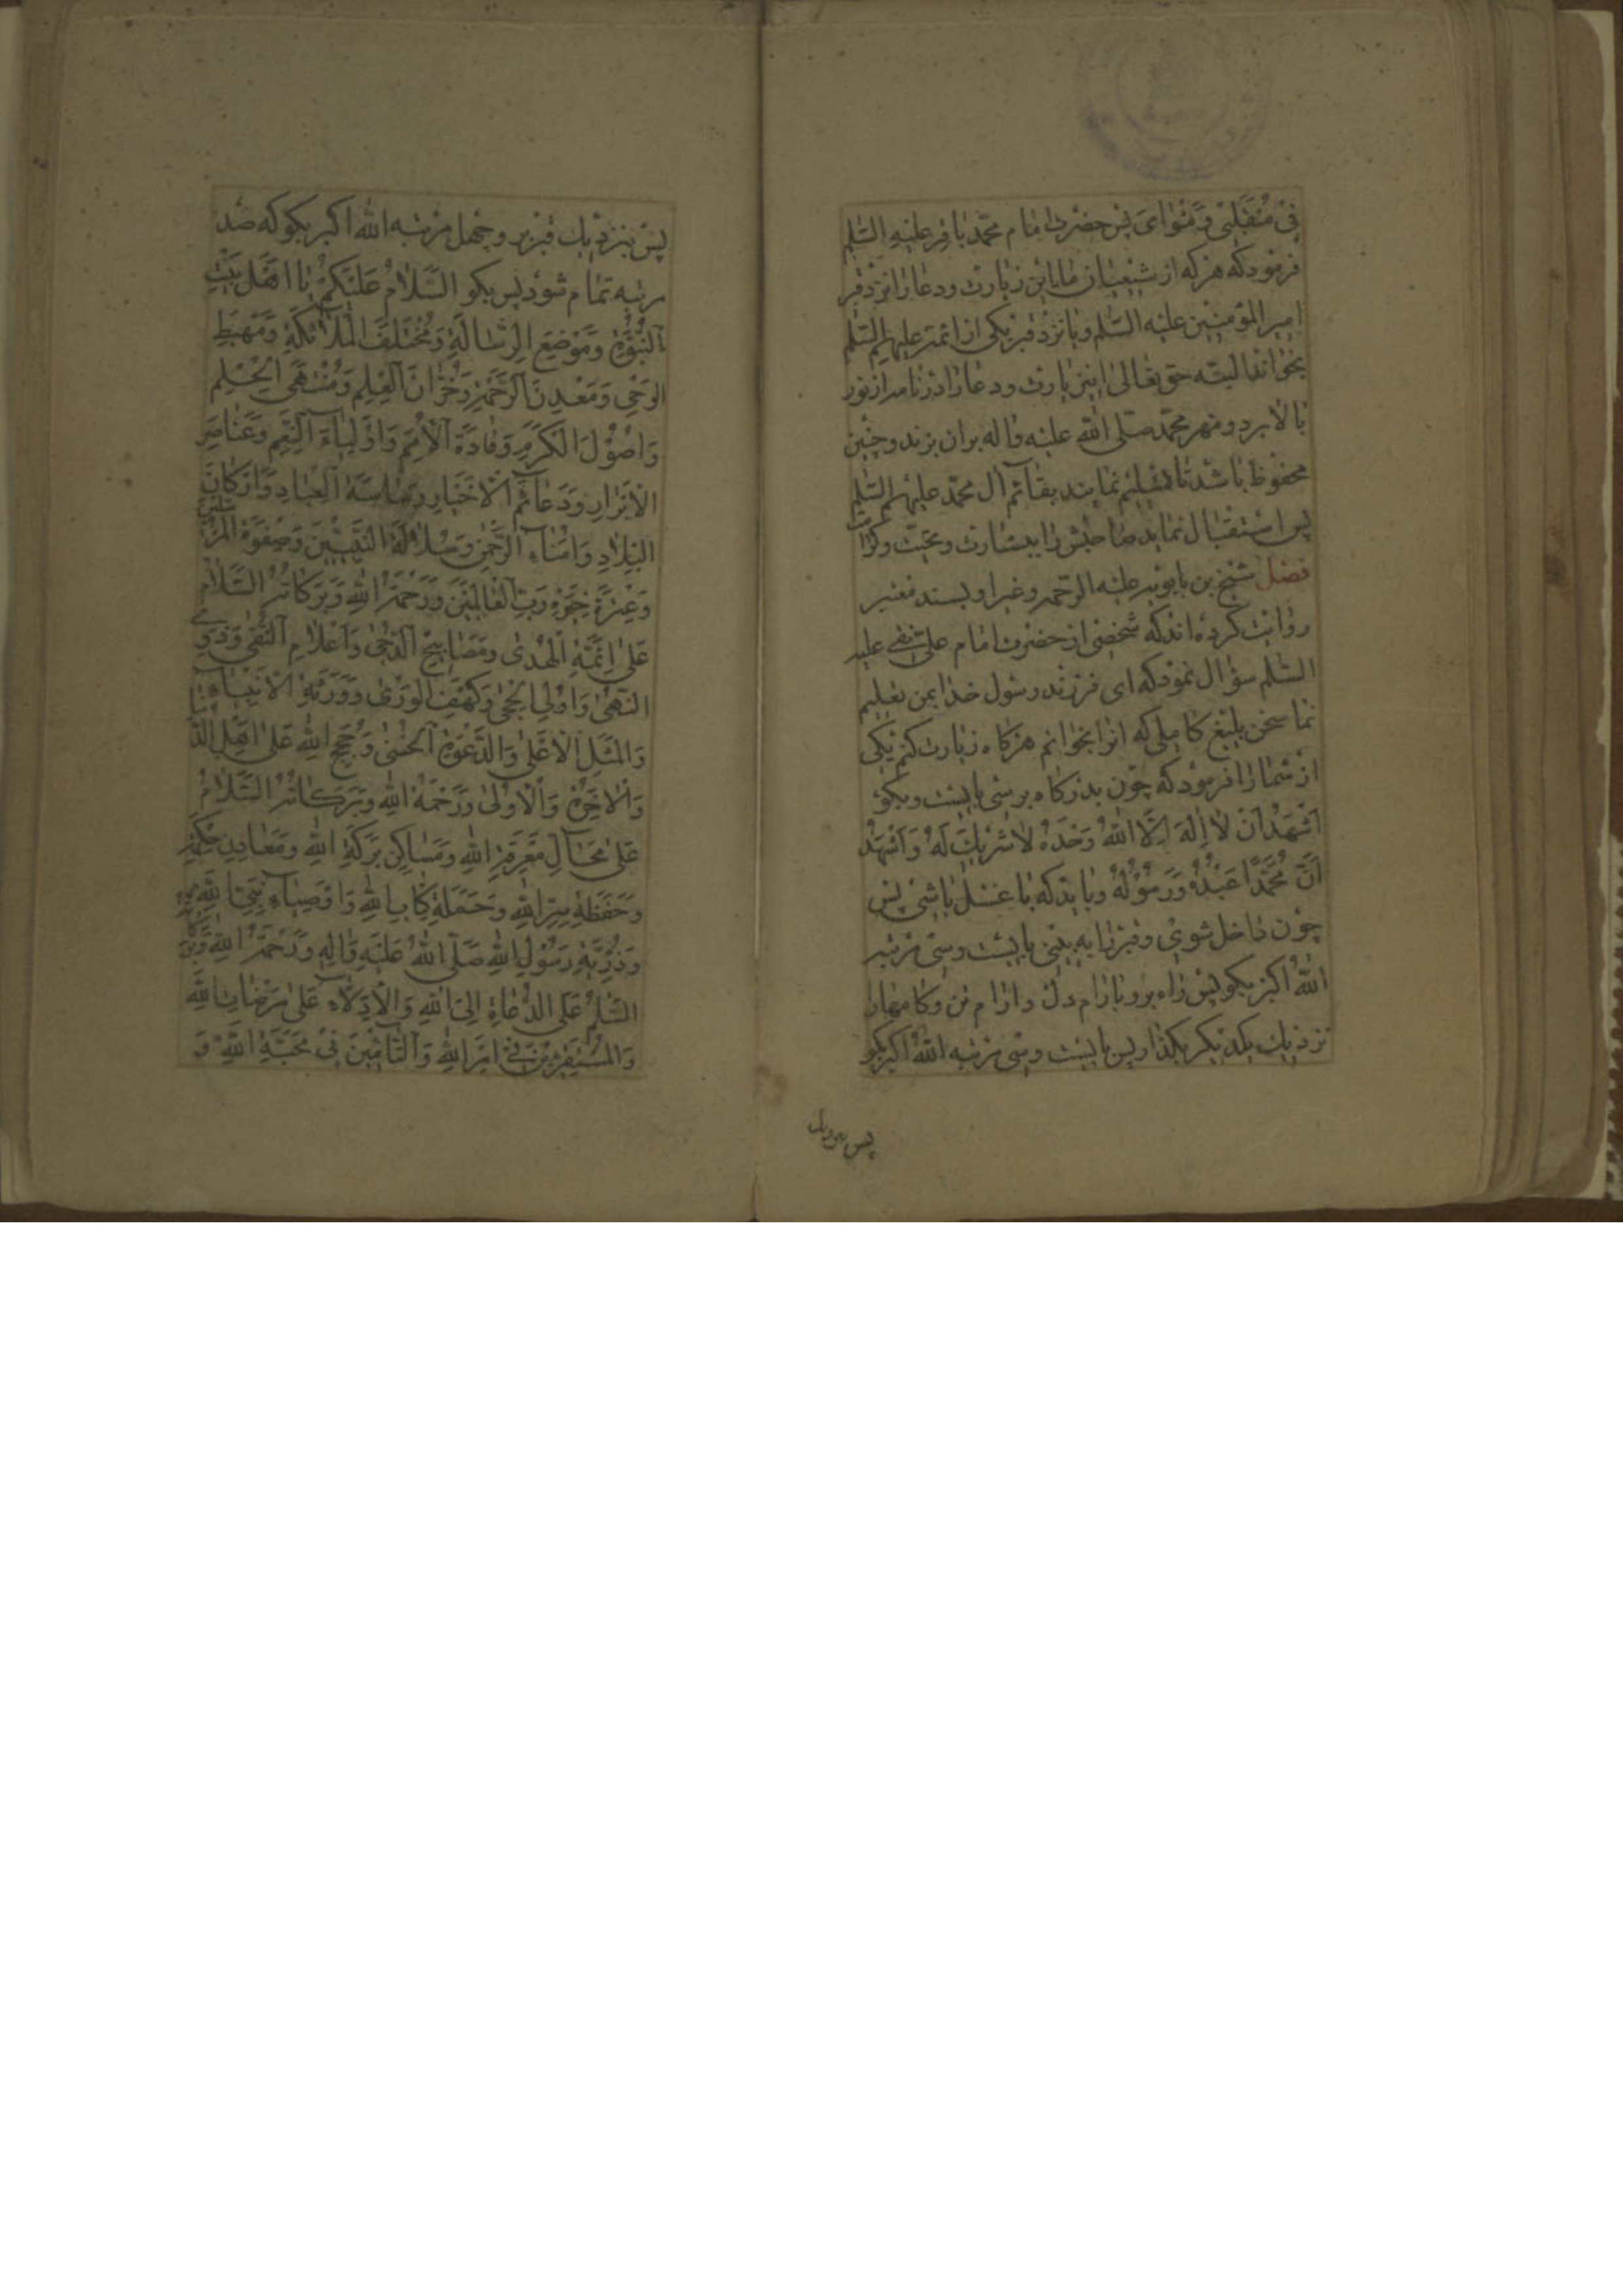 فِیْ مُنْقَلَبیْ وَمَثْوٰایَ پس حضرت امام محمّد باقر علیْهِ السّلم
فرمود که هرکه از شیعیان ما این زیارت ودعا را نزد قبر
امیر المؤمنین علیْه السّلم ویا نزد قبر یکی از ائمّه علیهم السّلم
بخواند البتّه حق تعالی این زیارت ودعا را در نامه از نور
بالا برد ومهر محمّد صلّی اللّه علیْه وآله بران بزند وچنین
محفوظ باشد تا تسلیم نمایند بقآئم آل محمّد علیهم السّلم
پس استقبال نماید صاحبش را ببشارت وتحیّت وکرامت
فصل شیخ بن بابویه علیْه الرّحمه وغیر او بسند معتبر
روایت کرده‌اند که شخصی از حضرت امام علی نقی علیه
السّلم سؤال نمود که ای فرزند رسول خدا بمن تعلیم
نما سخن بلیغ کاملی که انرا بخوانم هرکاه زیارت کنم یکی
از شما را فرمود که چون بدرکاه برسی بایست وبکو
اَشْهَدُ اَنْ لٰا اِلٰهَ اِلَّا اللّٰهُ وَحْدَهُ لٰا شَرِیْكَ لَهُ وَاَشْهَدُ
اَنَّ مُحَمَّدًا عَبْدُهُ وَرَسُوْلُهُ وباید که با غسل باشی پس
چون داخل شوی وقبر را به بینی بایست وسی مرتبه
اللّٰهُ اکبر بکو پس راه برو بارام دل وارام تن وکامها را
نزدیك یکدیکر بکذار پس بایست وسی مرتبه اللّٰهُ اکبر بکو
پس نزدیك
پس بنزدیك قبر برو وچهل مرتبه اللّٰه اکبر بکو که صد
مرتبه تمام شود پس بکو السَّلٰامُ عَلَیْکُمْ یٰا اَهْلَ بَیْتِ
النُّبُوَّةِ وَمَوْضِعَ الرِّسٰالَةِ وَمُخْتَلَفَ الْمَلٰآئِکَةِ وَمَهْبِطَ
الْوَحْیِ وَمَعْدِنَ الرَّحْمَةِ وَخُزّٰانَ الْعِلْمِ وَمُنْتَهَی الْحِلْمِ
وَاُصُوْلَ الْکَرَمِ وَقٰادَةَ الْاُمَمِ وَاَوْلِیٰآءَ النِّعَمِ وَعَنٰاصِرَ
الْاَبْرٰارِ وَدَعٰآئِمَ الْاَخْیٰارِ وَسٰاسَةَ الْعِبٰادِ وَاَرْکٰانَ
الْبِلٰادِ وَاُمَنٰآءَ الرَّحْمٰنِ وَسُلٰالَةَ النَّبِیّیْنَ وَصَفْوَةَ الْمُرْسَلِیْنَ
وَعِتْرَةَ خِیَرَةِ رَبِّ الْعٰالَمِیْنَ وَرَحْمَةُ اللّٰهِ وَبَرَکٰاتُهُ السَّلٰامُ
عَلٰی اَئِمَّةِ الْهُدٰی وَمَصٰابِیْحِ الدُّجٰی وَاَعْلٰامِ التُّقٰی وَذَوِی
النُّهٰی وَاُولِی الْحِجٰی وَکَهْفِ الْوَرٰی وَوَرَثَةِ الْاَنْبِیٰآءِ
وَالْمَثَلِ الْاَعْلٰی وَالدَّعْوَةِ الْحُسْنٰی وَحُجَجِ اللّٰهِ عَلٰی اَهْلِ الدُّنْیٰا
وَالْاٰخِرَةِ وَالْاُوْلٰی وَرَحْمَةُ اللّٰهِ وَبَرَکٰاتُهُ السَّلٰامُ
عَلٰی مَحٰآلِّ مَعْرِفَةِ اللّٰهِ وَمَسٰاکِنِ بَرَکَةِ اللّٰهِ وَمَعٰادِنِ حِکْمَةِ
وَحَفَظَةِ سِرِّ اللّٰهِ وَحَمَلَةِ کِتٰابِ اللّٰهِ وَاَوْصِیٰآءِ نَبِیِّ اللّٰهِ
وَذُرِّیَّةِ رَسُوْلِ اللّٰهِ صَلَّی اللّٰهُ عَلَیْهِ وَاٰلِهِ وَرَحْمَةُ اللّٰهِ وَبَرَکٰاتُهُ
السَّلٰمُ عَلَی الدُّعٰاةِ اِلَی اللّٰهِ وَالْاَدِلّٰآءِ عَلٰی مَرْضٰاتِ اللّٰهِ
وَالْمُسْتَقِرّیْنَ فِیْ اَمْرِ اللّٰهِ وَالتّٰآمّیْنَ فِیْ مَحَبَّةِ اللّٰهِ وَ